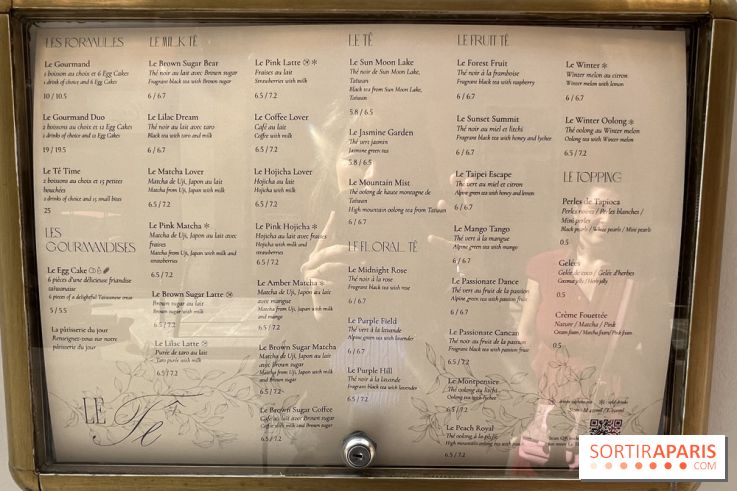 LES FORMULES
Le Gourmand
1 boisson au choix et 6 Egg Cakes
1 drink of choice and 6 Egg Cakes
10 / 10.5
Le Gourmand Duo
2 boissons au choix et 12 Egg Cakes
2 drinks of choice and 12 Egg Cakes
19 / 19.5
Le Tê Time
2 boissons au choix et 15 petites
bouchées
2 drinks of choice and 15 small bites
25
LES
GOURMANDISES
Le Egg Cake
6 pièces d'une délicieuse friandise
taïwanaise
6 pieces of a delightful Taiwanese treat
5 / 5.5
La pâtisserie du jour
Renseignez-vous sur notre
pâtisserie du jour
LE Tê
LE MILK TÊ
Le Brown Sugar Bear
Thé noir au lait avec Brown sugar
Fragrant black tea with Brown sugar
6 / 6.7
Le Lilac Dream
Thé noir au lait avec taro
Black tea with taro and milk
6 / 6.7
Le Matcha Lover
Matcha de Uji, Japon au lait
Matcha from Uji, Japan with milk
6.5 / 7.2
Le Pink Matcha *
Matcha de Uji, Japon au lait avec
fraises
Matcha from Uji, Japan with milk and
strawberries
6.5 / 7.2
Le Brown Sugar Latte
Brown sugar au lait
Brown sugar with milk
6.5 / 7.2
Le Lilac Latte
Purée de taro au lait
Taro purée with milk
6.5 / 7.2
Le Pink Latte *
Fraises au lait
Strawberries with milk
6.5 / 7.2
Le Coffee Lover
Café au lait
Coffee with milk
6.5 / 7.2
Le Hojicha Lover
Hojicha au lait
Hojicha with milk
6.5 / 7.2
Le Pink Hojicha *
Hojicha au lait avec fraises
Hojicha with milk and
strawberries
6.5 / 7.2
Le Amber Matcha *
Matcha de Uji, Japon au lait
avec mangue
Matcha from Uji, Japan with milk
and mango
6.5 / 7.2
Le Brown Sugar Matcha
Matcha de Uji, Japon au lait
avec Brown sugar
Matcha from Uji, Japan with milk
and Brown sugar
6.5 / 7.2
Le Brown Sugar Coffee
Café au lait avec Brown sugar
Coffee with milk and Brown sugar
6.5 / 7.2
LE TÊ
Le Sun Moon Lake
Thé noir de Sun Moon Lake,
Taïwan
Black tea from Sun Moon Lake,
Taiwan
5.8 / 6.5
Le Jasmine Garden
Thé vert jasmin
Jasmine green tea
5.8 / 6.5
Le Mountain Mist
Thé oolong de haute montagne de
Taïwan
High mountain oolong tea from Taiwan
6 / 6.7
LE FLORAL TÊ
Le Midnight Rose
Thé noir à la rose
Fragrant black tea with rose
6 / 6.7
Le Purple Field
Thé vert à la lavande
Alpine green tea with lavender
6 / 6.7
Le Purple Hill
Thé noir à la lavande
Fragrant black tea with lavender
6.5 / 7.2
LE FRUIT TÊ
Le Forest Fruit
Thé noir à la framboise
Fragrant black tea with raspberry
6 / 6.7
Le Sunset Summit
Thé noir au miel et litchi
Fragrant black tea with honey and lychee
6 / 6.7
Le Taipei Escape
Thé vert au miel et citron
Alpine green tea with honey and lemon
6 / 6.7
Le Mango Tango
Thé vert à la mangue
Alpine green tea with mango
6 / 6.7
Le Passionate Dance
Thé vert au fruit de la passion
Alpine green tea with passion fruit
6 / 6.7
Le Passionate Cancan
Thé noir au fruit de la passion
Fragrant black tea with passion fruit
6.5 / 7.2
Le Montpensier
Thé oolong au litchi
Oolong tea with lychee
6.5 / 7.2
Le Peach Royal
Thé oolong à la pêche
High mountain oolong tea with peach
6 / 6.7
Le Winter *
Winter melon au citron
Winter melon with lemon
6 / 6.7
Le Winter Oolong *
Thé oolong au Winter melon
Oolong tea with Winter melon
6.5 / 7.2
LE TOPPING
Perles de Tapioca
Perles noires / Perles blanches /
Mini perles
Black pearls / White pearls / Mini pearls
0.5
Gelées
Gelée de coco / Gelée d'herbes
Coconut jelly / Herb jelly
0.5
Crème Fouettée
Nature / Matcha / Pink
Cream foam / Matcha foam / Pink foam
0.5
SORTIRAPARIS
.COM